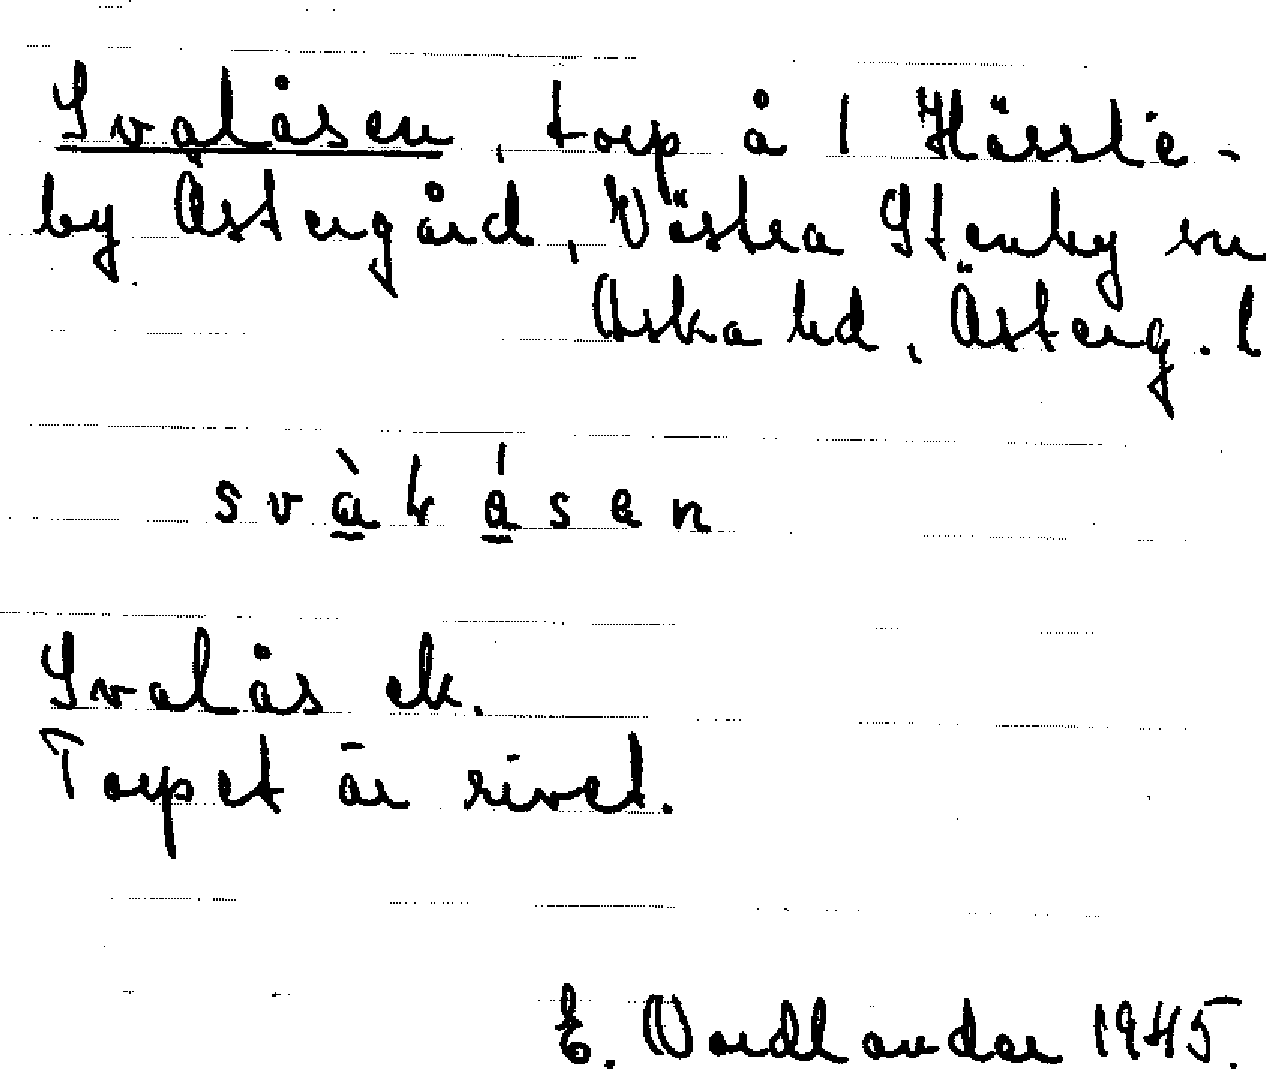 Svalåsen, torp å 1 Hässle-
by Östergård, Västra Stenby sn
Aska hd, Österg. l
svàlåsen
Svalås ek.
Torpet är rivet.
E. Nordlander 1945.